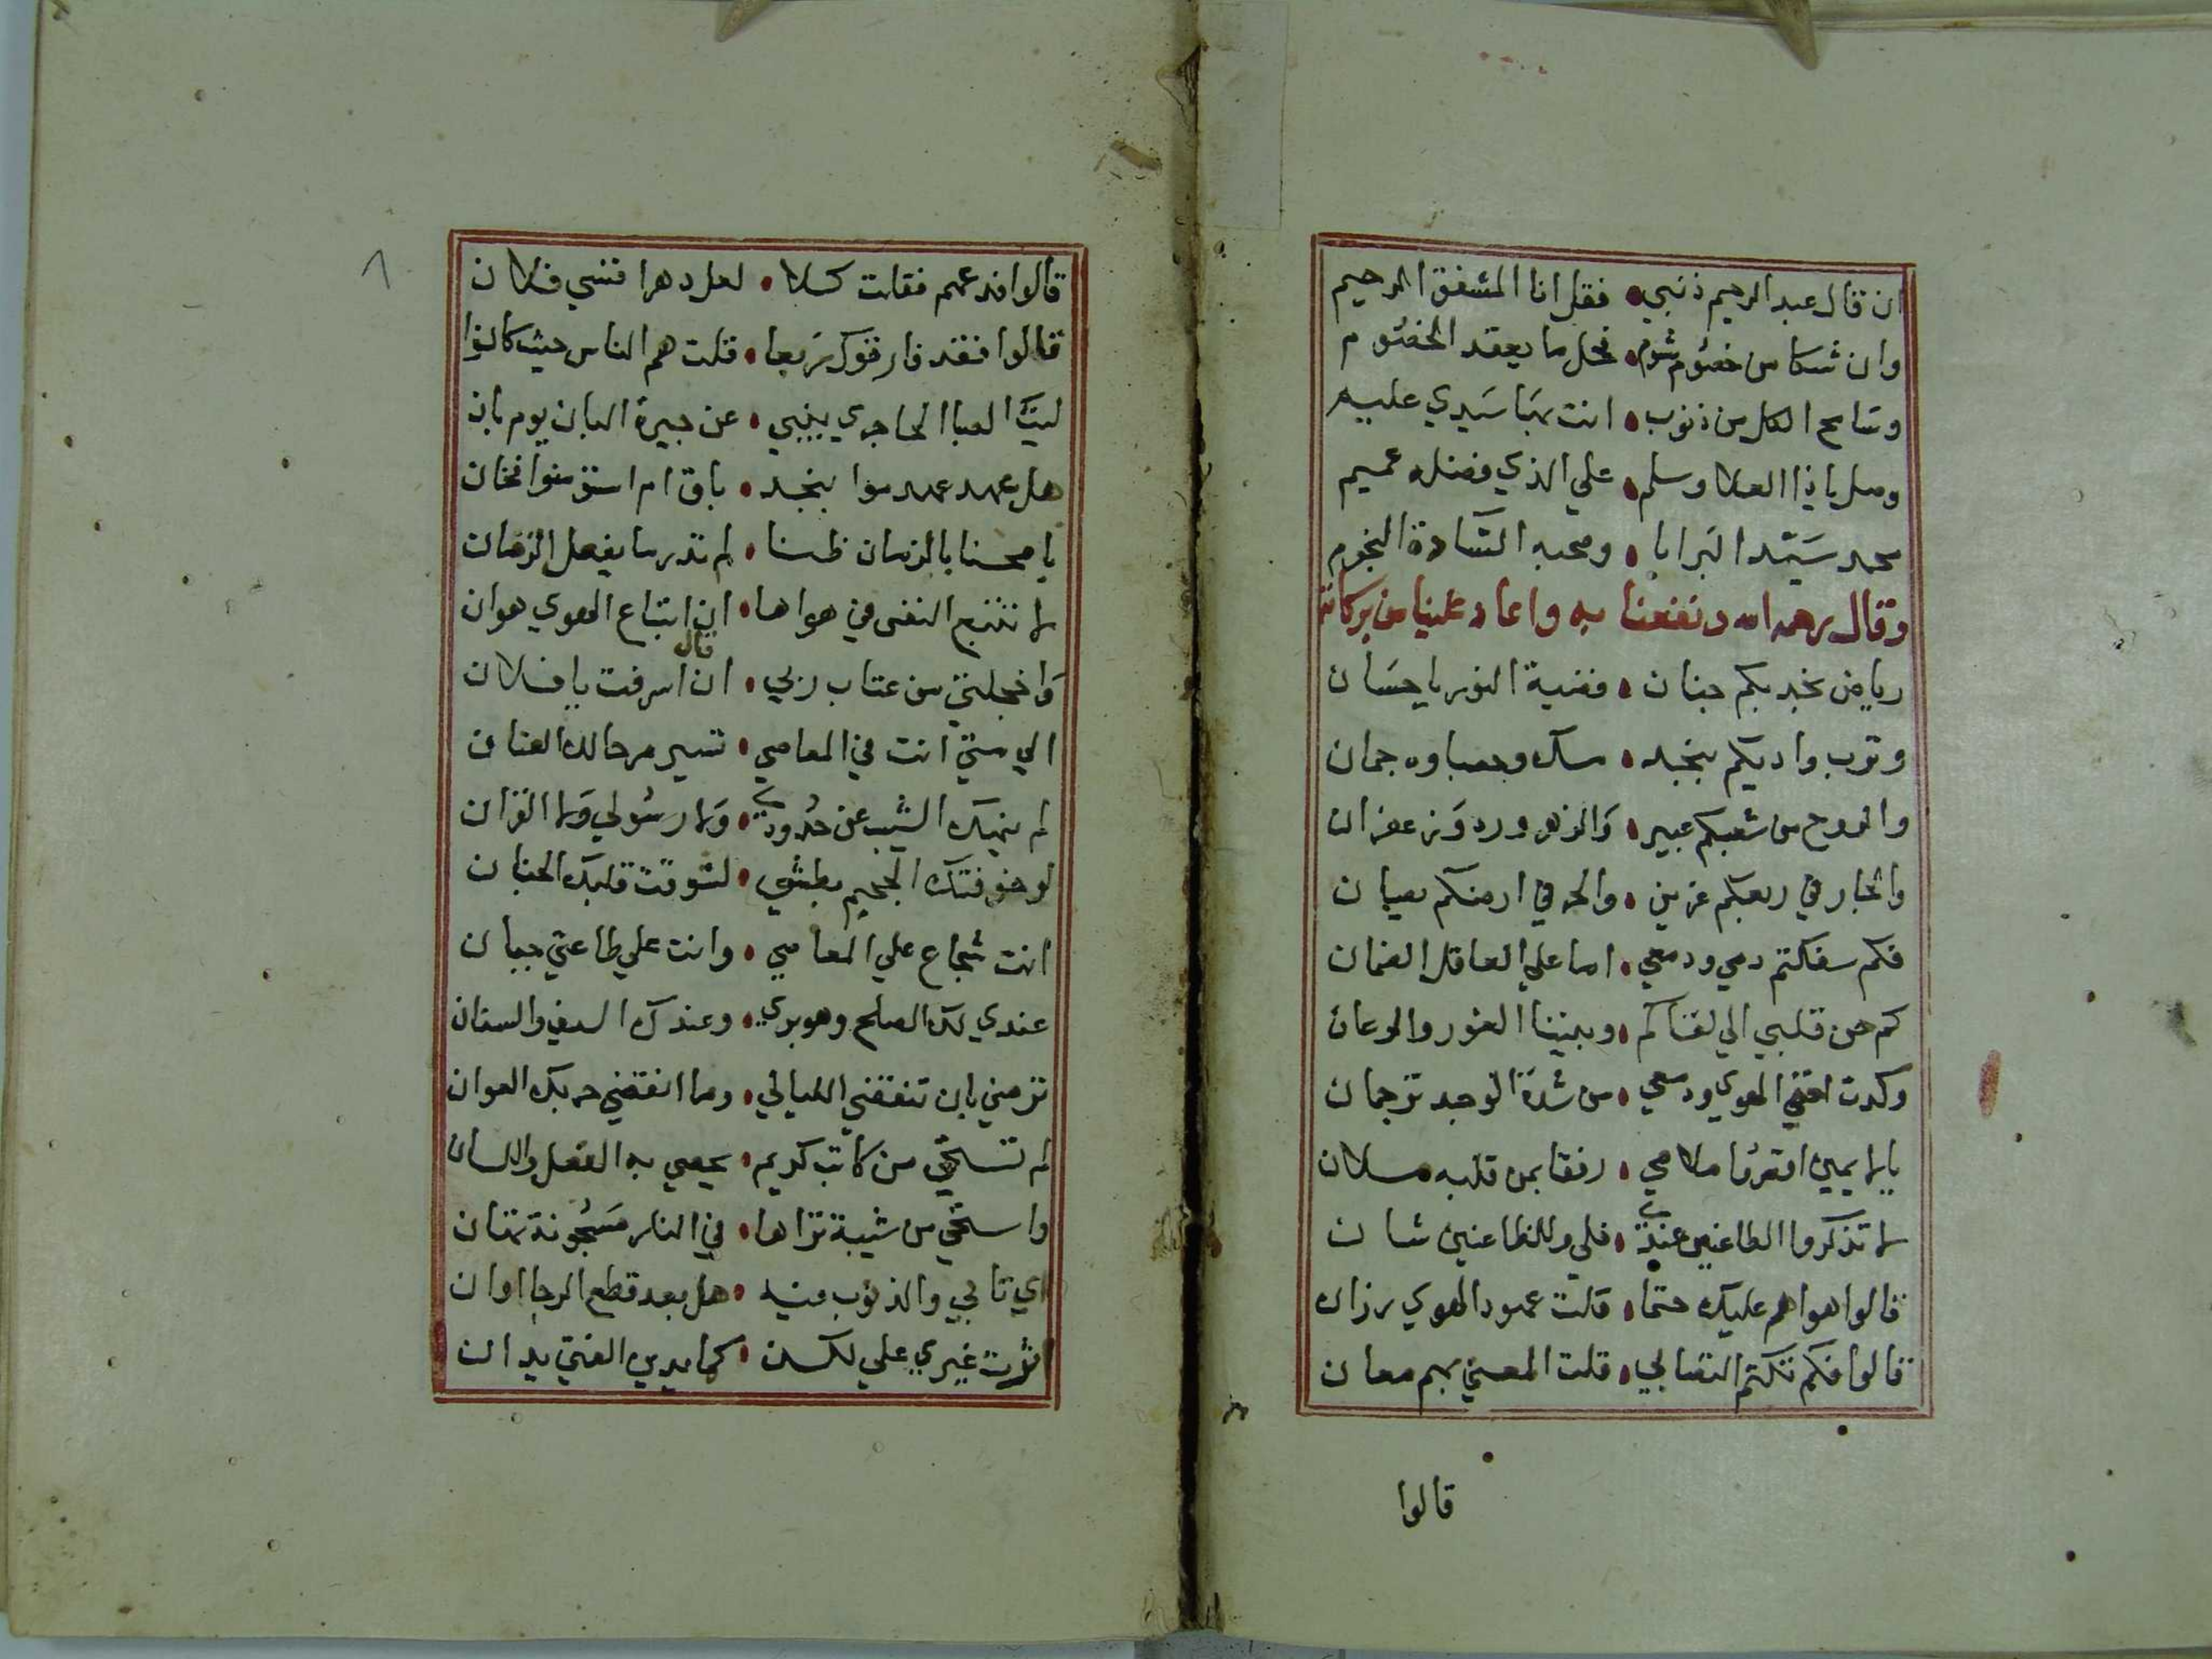 ان قال عبد الرحيم ذنبي • فقل انا المشفق الرحيم
وان شكا من خصوم شوم • فحل ما يعقد الخصوم
وسامح الكل من ذنوب • انت بها سيدي عليم
وصل ياذا العلا وسلم • علي الذي فضله عميم
محمد سيد البرايا • وصحبه السادة النجوم
وقال رحمه الله ونفعنا به واعاد علينا من بركاته
رياض نجد بكم جنان • فضية النور يا حسان
وترب واديكم بنجد • مسك وحصباوه جمان
والروح من شعبكم عبير • والزهر ورد وزعفران
والجار في ربعكم عزيز • والحر في ارضكم يصان
فكم سفكتم دمي ودمعي • اما علي العاقل الضمان
كم حن قلبي الي لقاكم • وبيننا الغور والرعان
وكدت اخفي الهوي ودمعي • من شدة الوجد ترجمان
يا لايمين اقصرا ملامي • رفقا بمن قلبه ملان
لا تذكروا الظاعنين عندي • فلي وللظاعنين شان
قالوا هواهم عليك حتما • قلت عمود الهوي رزان
قالوا فكم تكتم التصابي • قلت المعني بهم معان
قالوا
قالوا فدعهم فقلت كلا • لعل دهرا قسي فلان
قالوا فقد فارقوك ربعا • قلت هم الناس حيث كانوا
ليت الصبا الحاجري ينبي • عن جيرة البان يوم بانوا
هل عهد عهدموا بنجد • باق ام استؤمنوا فخانوا
يا محسنا بالزمان ظنا • لم تدر ما يفعل الزمان
لا تتبع النفس في هواها • ان اتباع الهوي هوان
واخجلتي من عتاب ربي • ان قال اسرفت يا فلان
الي متي انت في المعاصي • تسير مرخا لك العنان
لم ينهك الشيب عن حدودي • ولا رسولي ولا القران
لو خوفتك الجحيم بطشي • لشوقت قلبك الجنان
انت شجاع علي المعاصي • وانت علي طاعتي جبان
عندي لك الصلح وهو بري • وعندك السيف والسنان
ترضي بان تنقضي الليالي • وما انقضي حربك العوان
لم تستحي من كاتب كريم • يحصي به الفعل واللسان
واستحي من شيبة تراها • في النار مسجونة تهان
اي تابي والذنوب منه • هل بعد قطع الرجا اوان
اثرت غيري علي لكن • كما يدين الفتي يدان